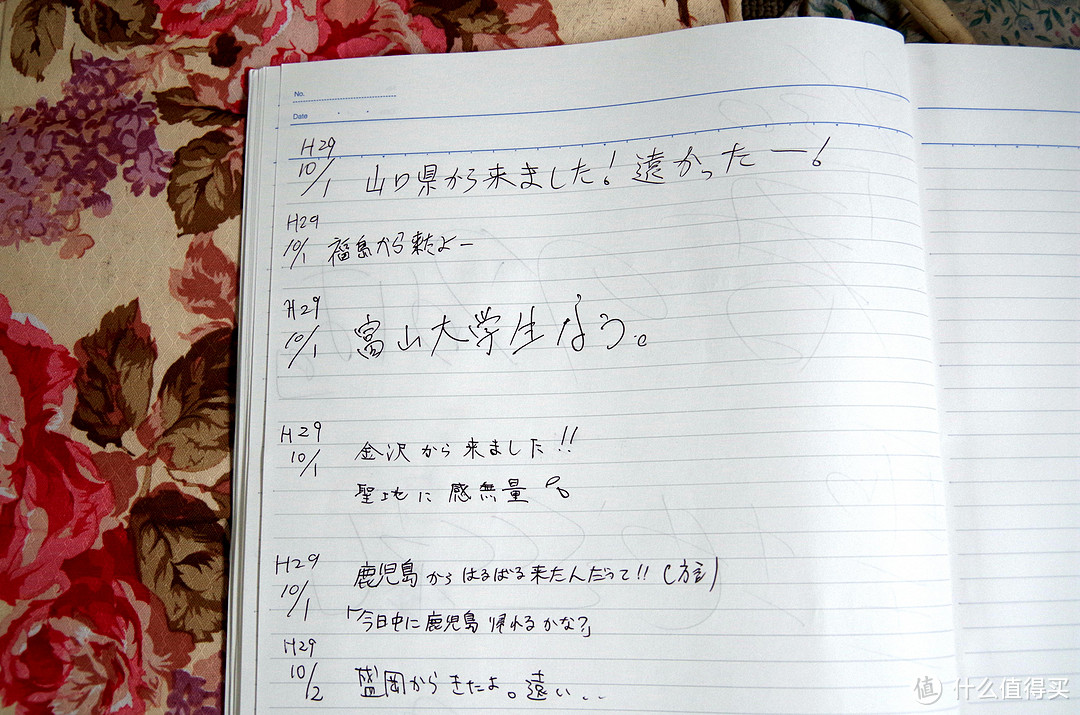 No.
Date
H29
10/1 山口県から来ました！遠かったー！
H29
10/1 福島から来たよー
H29
10/1 富山大学生なう。
H29
10/1 金沢から来ました!!
聖地に感無量
H29
10/1 鹿児島からはるばる来たんだって!! (方言)
「今日中に鹿児島帰れるかな？」
H29
10/2 盛岡からきたよ。遠い...
值 什么值得买